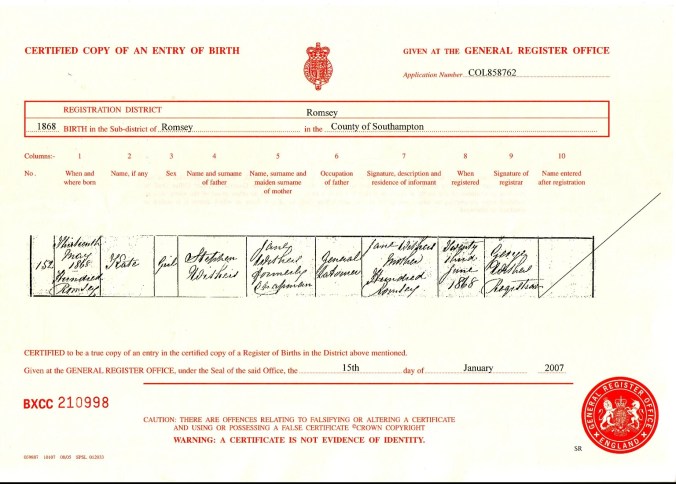 CERTIFIED COPY OF AN ENTRY OF BIRTH
GIVEN AT THE GENERAL REGISTER OFFICE
Application Number COL858762
REGISTRATION DISTRICT Romsey
1868 BIRTH in the Sub-district of Romsey in the County of Southampton
Columns:- 1 2 3 4 5 6 7 8 9 10
No. When and where born Name, if any Sex Name and surname of father Name, surname and maiden surname of mother Occupation of father Signature, description and residence of informant When registered Signature of registrar Name entered after registration
152
Thirteenth
May
1868
Hundred
Romsey
Kate
Girl
Stephen
Withers
Jane
Withers
formerly
Chapman
General
Labourer
Jane Withers
Mother
Hundred
Romsey
Twenty
third
June
1868
George
Registrar
CERTIFIED to be a true copy of an entry in the certified copy of a Register of Births in the District above mentioned.
Given at the GENERAL REGISTER OFFICE, under the Seal of the said Office, the 15th day of January 2007
BXCC 210998
CAUTION: THERE ARE OFFENCES RELATING TO FALSIFYING OR ALTERING A CERTIFICATE
AND USING OR POSSESSING A FALSE CERTIFICATE ©CROWN COPYRIGHT
WARNING: A CERTIFICATE IS NOT EVIDENCE OF IDENTITY.
GENERAL REGISTER OFFICE
ENGLAND
SR